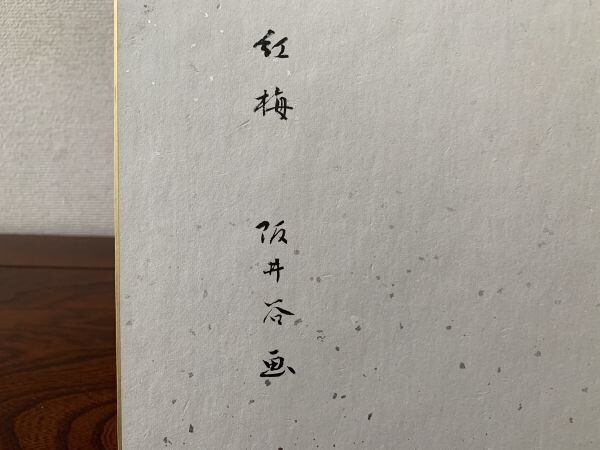 紅梅 阪井谷画